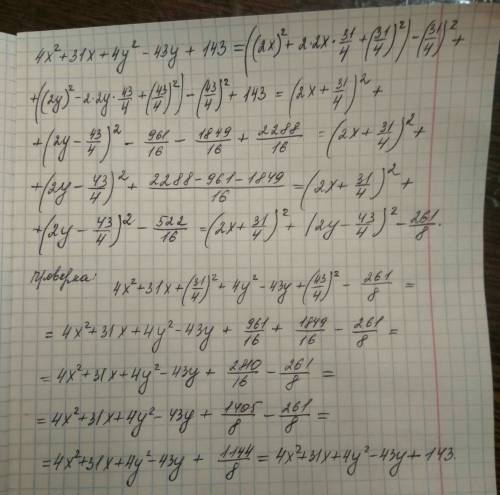 4x² + 31x + 4y² - 43y + 143 = ((2x)² + 2·2x·31/4 + (31/4)²) - (31/4)² +
+ ((2y)² - 2·2y·43/4 + (43/4)²) - (43/4)² + 143 = (2x + 31/4)² +
+ (2y - 43/4)² - 961/16 - 1849/16 + 2288/16 = (2x + 31/4)² +
+ (2y - 43/4)² + (2288-961-1849)/16 = (2x + 31/4)² +
+ (2y - 43/4)² - 522/16 = (2x + 31/4)² + (2y - 43/4)² - 261/8.
проверка:
4x² + 31x + (31/4)² + 4y² - 43y + (43/4)² - 261/8 =
= 4x² + 31x + 4y² - 43y + 961/16 + 1849/16 - 261/8 =
= 4x² + 31x + 4y² - 43y + 2810/16 - 261/8 =
= 4x² + 31x + 4y² - 43y + 1405/8 - 261/8 =
= 4x² + 31x + 4y² - 43y + 1144/8 = 4x² + 31x + 4y² - 43y + 143.